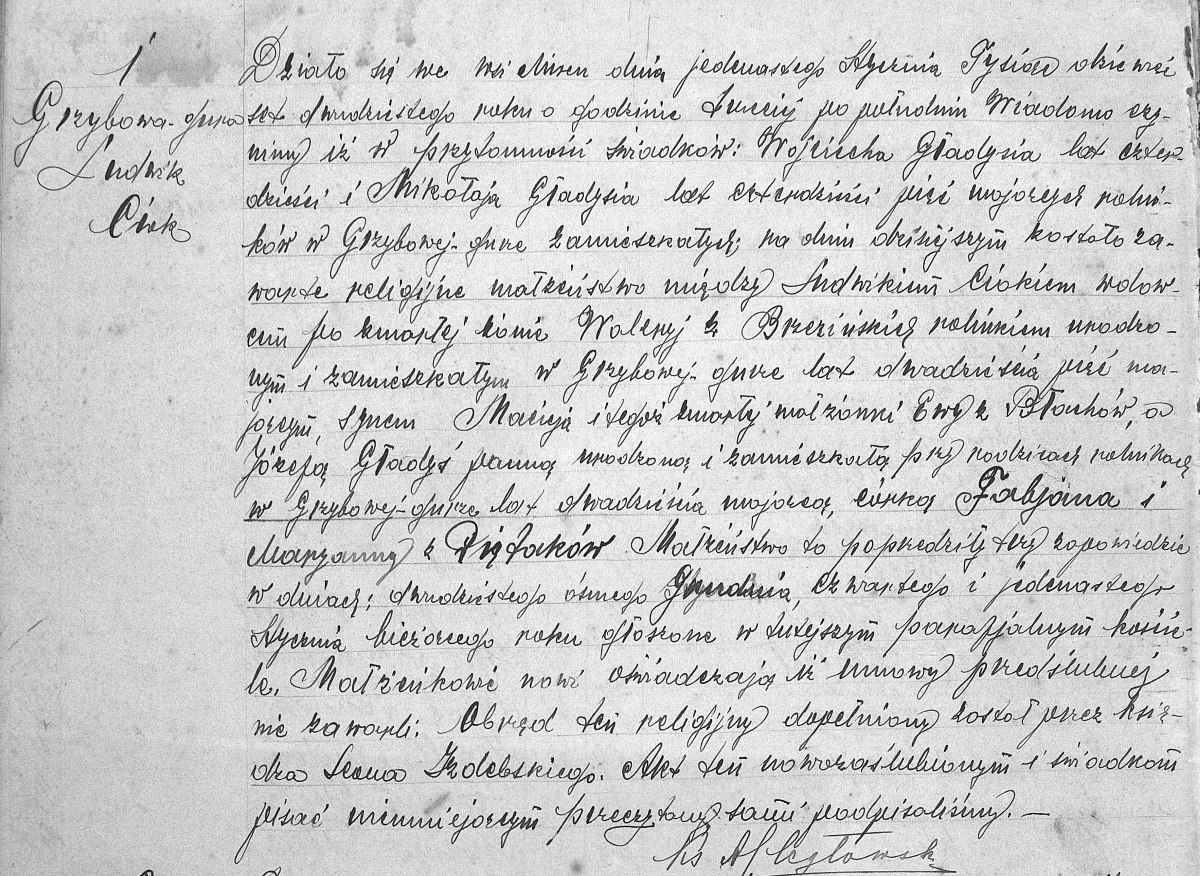 1
Grzybowa-gura
Ludwik
Ciok
Działo się we wsi Mircu dnia jedenastego Stycznia Tysiąc dziewięć
set dwudziestego roku o godzinie trzeciej po południu Wiadomo czy-
nimy iż w przytomności świadków: Wojciecha Gładysia lat czter-
dzieści i Mikołaja Gładysia lat czterdzieści pięć mających rolni-
ków w Grzybowej-gurze zamieszkałych; na dniu dzisiejszym zostało za-
warte religijne małżeństwo między Ludwikiem Ciokiem wdow-
cem po zmarłej żonie Waleryj z Brzezińskich rolnikiem urodzo-
nym i zamieszkałym w Grzybowej-gurze lat dwadzieścia pięć ma-
jącym, synem Macieja i tegoż zmarłej małżonki Ewy z Błachów, a
Józefą Gładyś panną urodzoną i zamieszkałą przy rodzicach rolnikach
w Grzybowej-gurze lat dwadzieścia mającą, córką Fabjana i
Maryanny z Piętaków. Małżeństwo to poprzedziły trzy zapowiedzie
w dniach; dwudziestego ósmego Grudnia, czwartego i jedenastego
Stycznia bieżącego roku głoszone w tutejszym parafjalnym koście-
le. Małżonkowie nowi oświadczają iż umowy przedślubnej
nie zawarli. Obrzęd ten religijny dopełniony został przez księ-
dza Leona Izdebskiego. Akt ten nowozaślubionym i świadkom
pisać nieumiejącym przeczytany sami podpisaliśmy.—
Ks A